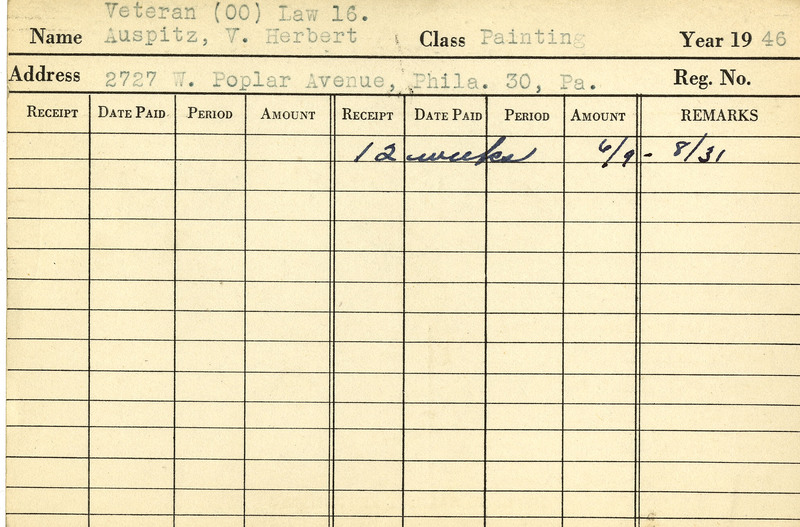 Veteran (OO) Law 16.
Name Auspitz, V. Herbert Class Painting Year 19 46
Address 2727 W. Poplar Avenue, Phila. 30, Pa. Reg. No.
RECEIPT DATE PAID PERIOD AMOUNT RECEIPT DATE PAID PERIOD AMOUNT REMARKS
12 weeks 6/9 - 8/31